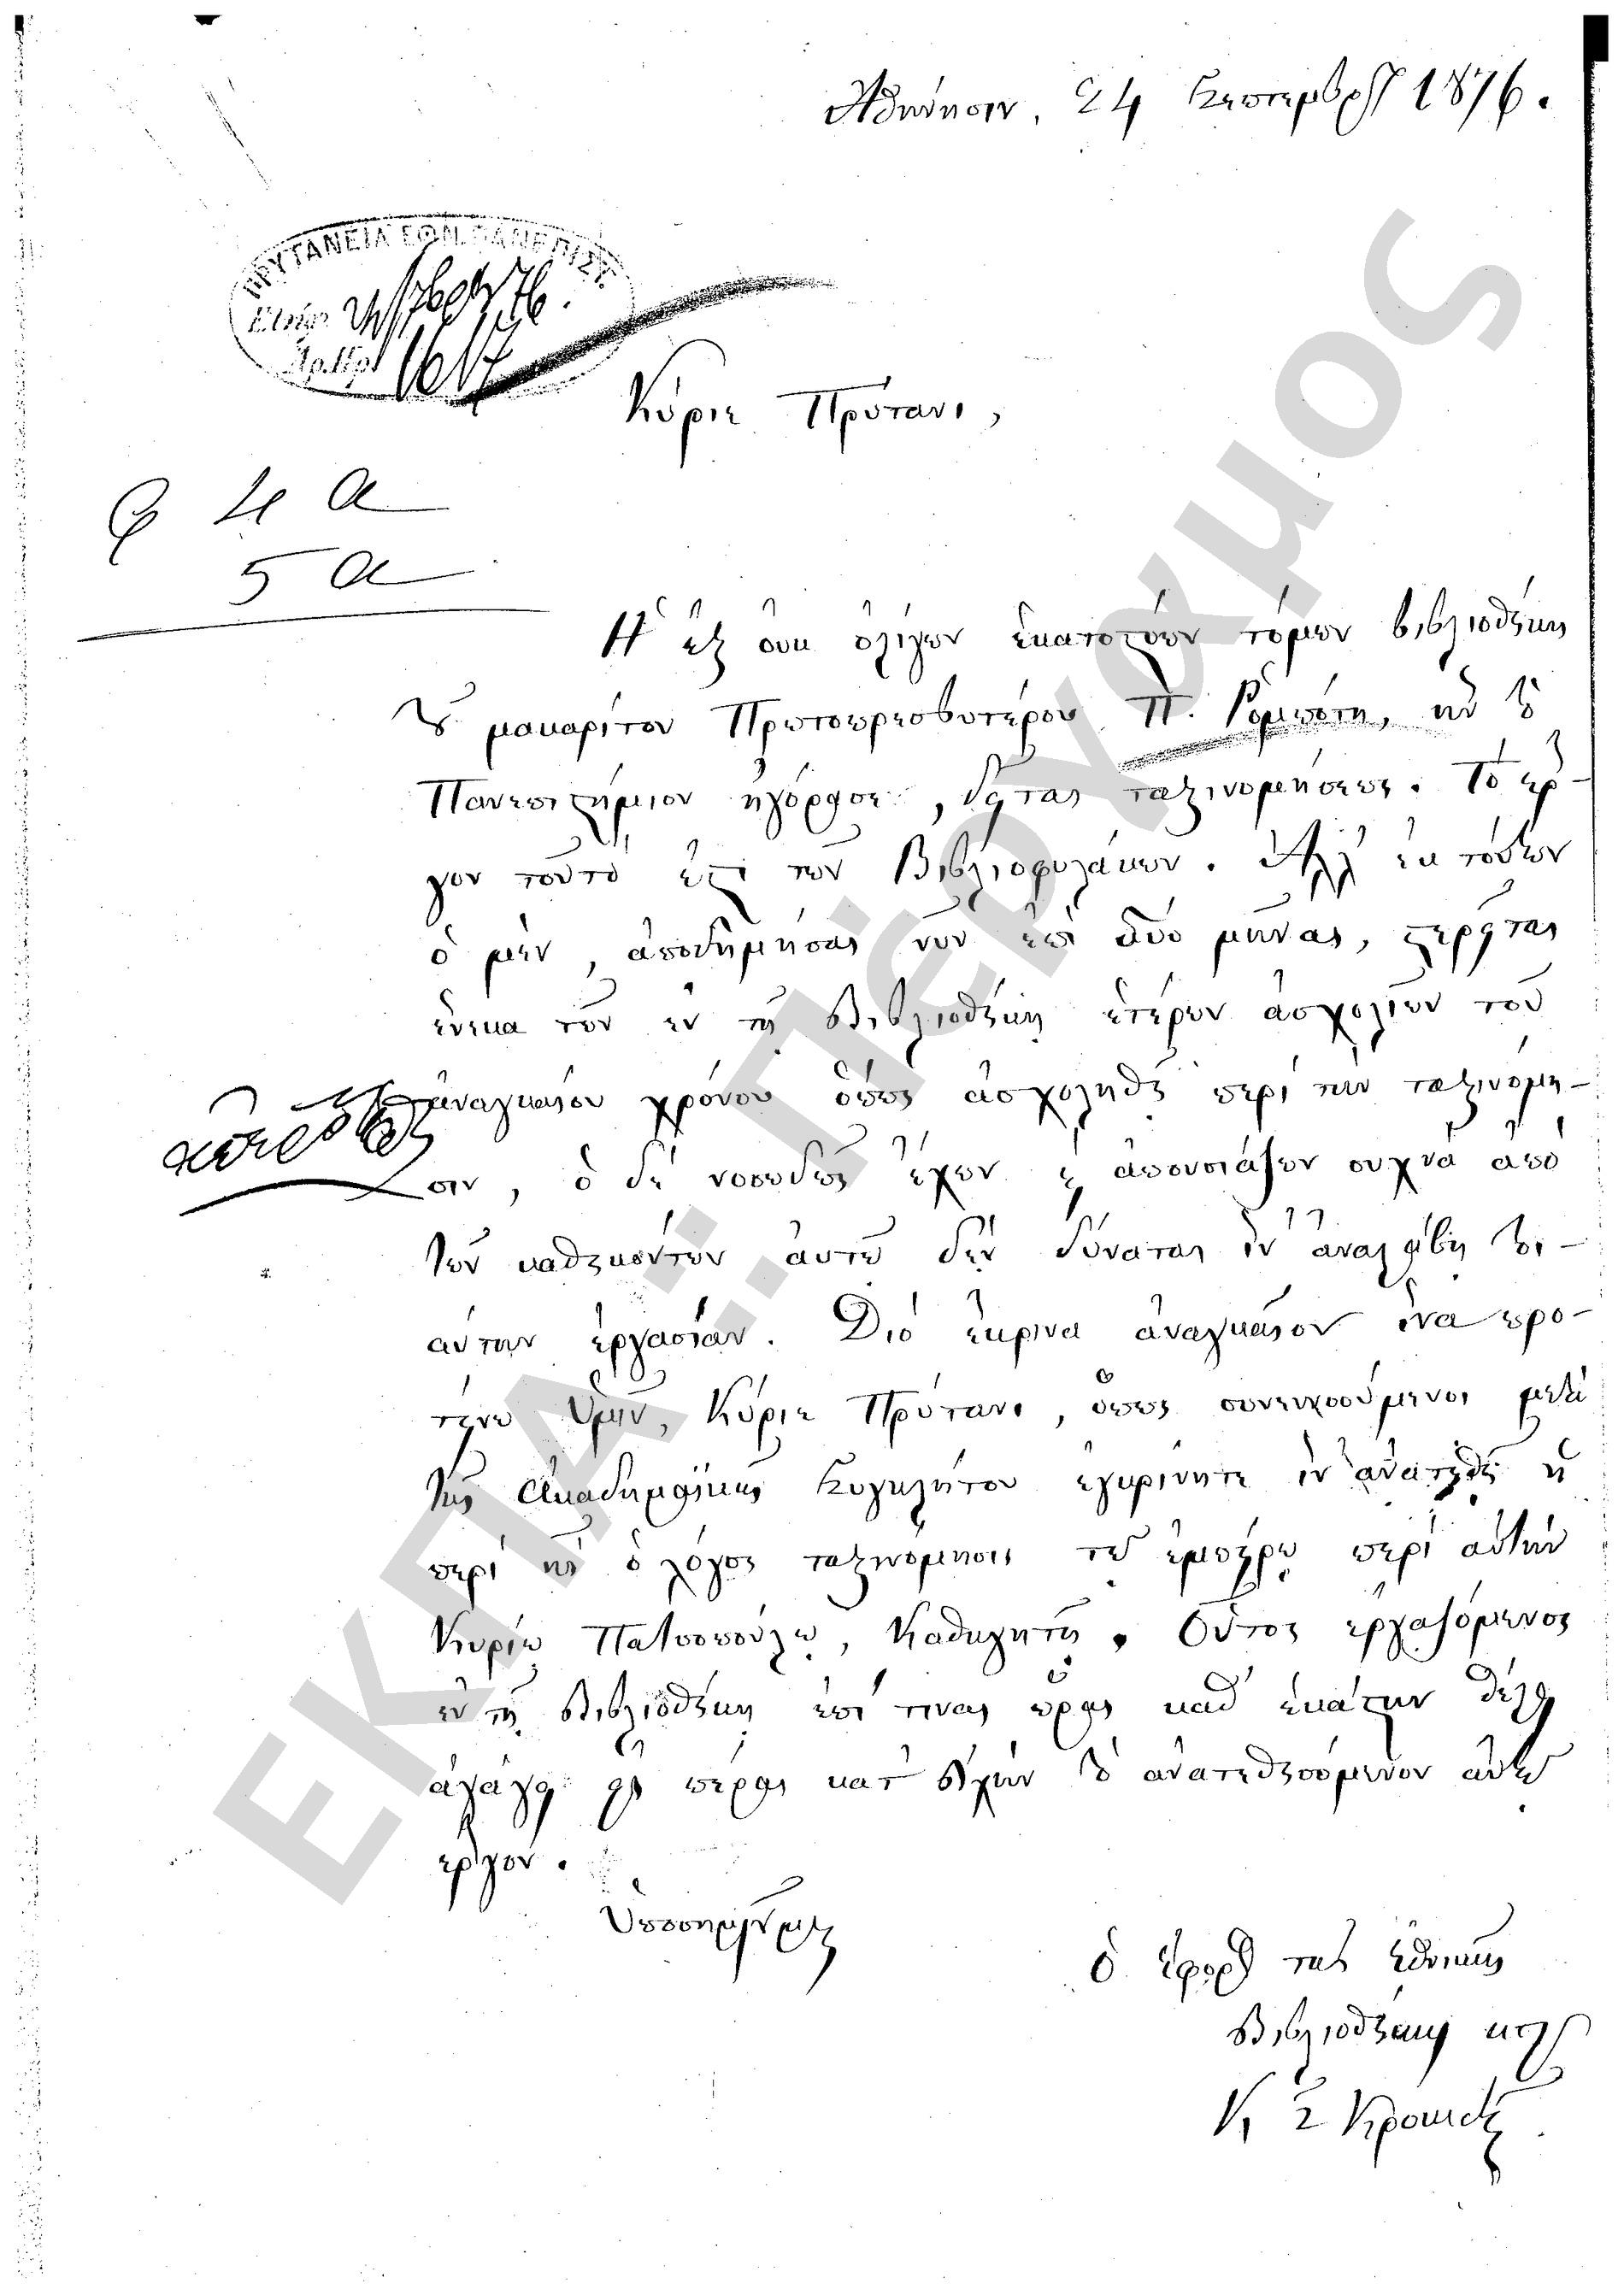 Ἀθήνησιν, 24 Σεπτεμβρίου 1876.
ΠΡΥΤΑΝΕΙΑ ΕΘΝ. ΠΑΝΕΠΙΣΤ.
Ἀρ. Πρ. 1617
Κύριε Πρύτανι,
4 α
5 α
Ἡ ἐξ οὐκ ὀλίγων ἑκατοστύων τόμων βιβλιοθήκη
τοῦ μακαρίτου Πρωτοπρεσβυτέρου Π. Ρομπότη, ἣν τὸ
Πανεπιστήμιον ἠγόρασε, δεῖται ταξινομήσεως. Τὸ ἔρ-
γον τοῦτό ἐστι τῶν Βιβλιοφυλάκων. Ἀλλ' ἐκ τούτων
ὁ μὲν, ἀποδημήσας νῦν ἐπὶ δύο μῆνας, στερεῖται
ἕνεκα τῶν ἐν τῇ Βιβλιοθήκῃ ἑτέρων ἀσχολιῶν τοῦ
ἀναγκαίου χρόνου ὅπως ἀσχοληθῇ περὶ τὴν ταξινόμη-
σιν, ὁ δὲ νοσωδῶς ἔχων καὶ ἀπουσιάζων συχνὰ ἀπὸ
τῶν καθηκόντων αὐτοῦ δὲν δύναται ν' ἀναλάβῃ τοι-
αύτην ἐργασίαν. Διὸ ἔκρινα ἀναγκαῖον ἵνα προ-
τείνω Ὑμῖν, Κύριε Πρύτανι, ὅπως συνεννοούμενοι μετὰ
τῆς Ἀκαδημαϊκῆς Συγκλήτου ἐγκρίνητε ν' ἀνατεθῇ ἡ
περὶ ἧς ὁ λόγος ταξινόμησις τῷ ἐμπείρῳ περὶ αὐτὴν
Κυρίῳ Πατσοπούλῳ, Καθηγητῇ. Οὗτος ἐργαζόμενος
ἐν τῇ Βιβλιοθήκῃ ἐπί τινας ὥρας καθ' ἑκάστην θέλει
ἀγάγει εἰς πέρας κατ' εὐχὴν τὸ ἀνατεθησόμενον αὐτῷ
ἔργον.
Ὑποσημειοῦμαι
Ὁ Ἔφορος τῆς Ἐθνικῆς
Βιβλιοθήκης κτλ
ΕΚΠΑ: Πέργαμος